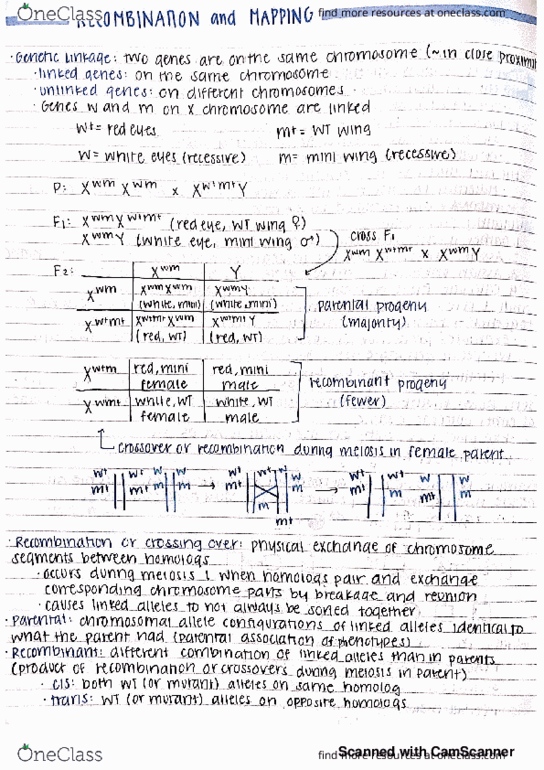 OneClass
RECOMBINATION and MAPPING
find more resources at oneclass.com
· Genetic Linkage: two genes are on the same chromosome (~in close proximi
· linked genes: on the same chromosome
· unlinked genes: on different chromosomes
· Genes w and m on X chromosome are linked
w+ = red eyes m+ = WT wing
w = white eyes (recessive) m = mini wing (recessive)
P: X^wm X^wm x X^w+m+ Y
F1: X^wm X^w+m+ (red eye, WT wing ♀)
X^wm Y (white eye, mini wing ♂)
cross F1
X^wm X^w+m+ x X^wm Y
F2:
X^wm Y
X^wm X^wm X^wm X^wm Y
(white, mini) (white, mini)
X^w+m+ X^w+m+ X^wm X^w+m+ Y
(red, WT) (red, WT)
parental progeny
(majority)
X^w+m red, mini red, mini
female male
X^wm+ white, WT white, WT
female male
recombinant progeny
(fewer)
crossover or recombination during meiosis in female parent
w+ w+ w w → w+ w+ w w → w+ w+ w w
m+ m+ m m m m m+ m m+ m
m+
· Recombination or crossing over: physical exchange of chromosome
segments between homologs
· occurs during meiosis 1 when homologs pair and exchange
corresponding chromosome parts by breakage and reunion
· causes linked alleles to not always be sorted together
· Parental: chromosomal allele configurations of linked alleles identical to
what the parent had (parental association of phenotypes)
· Recombinant: different combination of linked alleles than in parents
(product of recombination or crossovers during meiosis in parent)
· cis: both WT (or mutant) alleles on same homolog
· trans: WT (or mutant) alleles on opposite homologs
OneClass
find more resources at oneclass.com
Scanned with CamScanner